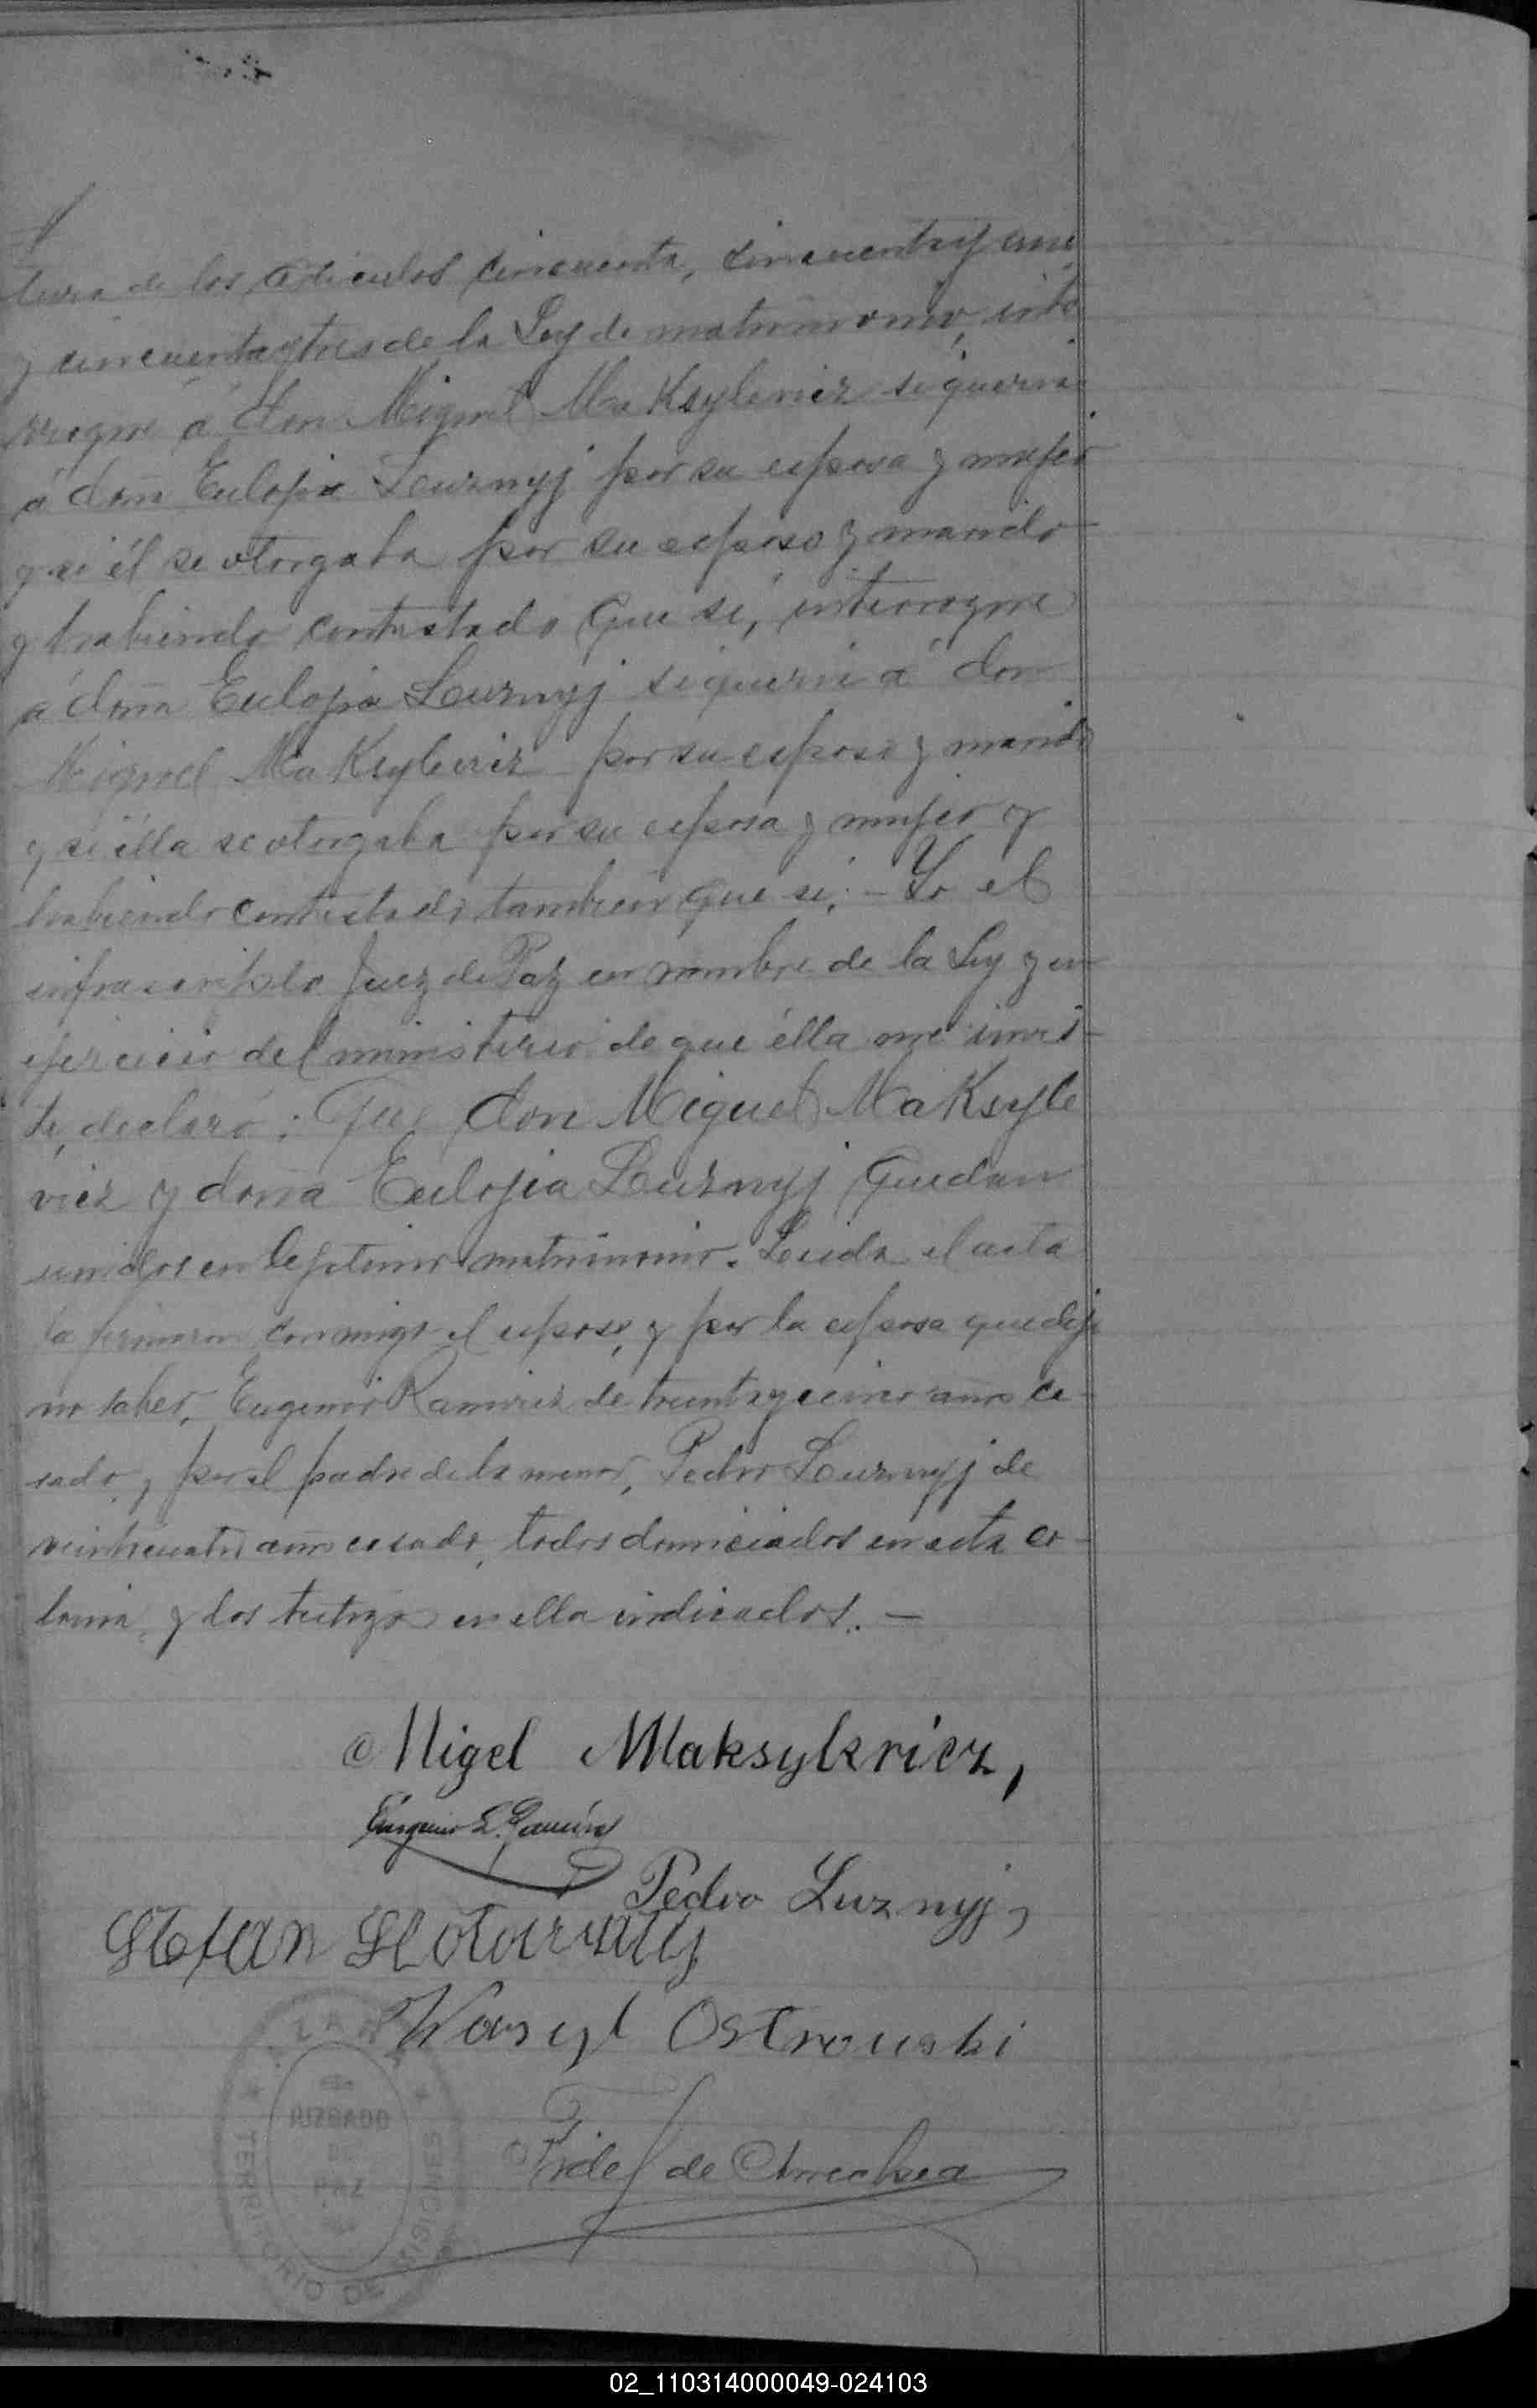 tura de los articulos cincuenta, cincuenta y uno
y cincuenta y tres de la Ley de matrimonio, inte
rrogue á don Miguel Maksylevicz si queria
á doña Eulojia Luznyj por su esposa y mujer
y si él se otorgaba por su esposo y marido
y habiendo contestado que si, interrogue
á doña Eulojia Luznyj si queria á don
Miguel Maksylevicz por su esposo y marido
y si élla se otorgaba por su esposa y mujer y
habiendo contestado tambien que si; - Yo el
infrascripto Juez de Paz en nombre de la Ley y en
ejercicio del ministerio de que élla me invis-
te, declaró: Que don Miguel Maksyle
vicz y doña Eulojia Luznyj quedan
unidos en lejitimo matrimonio. Leida el acta
la firmaron conmigo el esposo, y por la esposa que dijo
no saber, Eugenio Ramirez de treinta y cinco años ca-
sado, y por el padre de la menor, Pedro Luznyj de
veinticuatro años casado, todos domiciados en esta co-
lonia, y los testigos en ella indicados. —
Migel Maksylkvicz,
Eugenio L. Ramirez
Pedro Luznyj,
Stefan
Wasyl Ostrouski
Fidel de Arrechea
JUZGADO
DE
PAZ
TERRITORIO
MISIONES
02_110314000049-024103